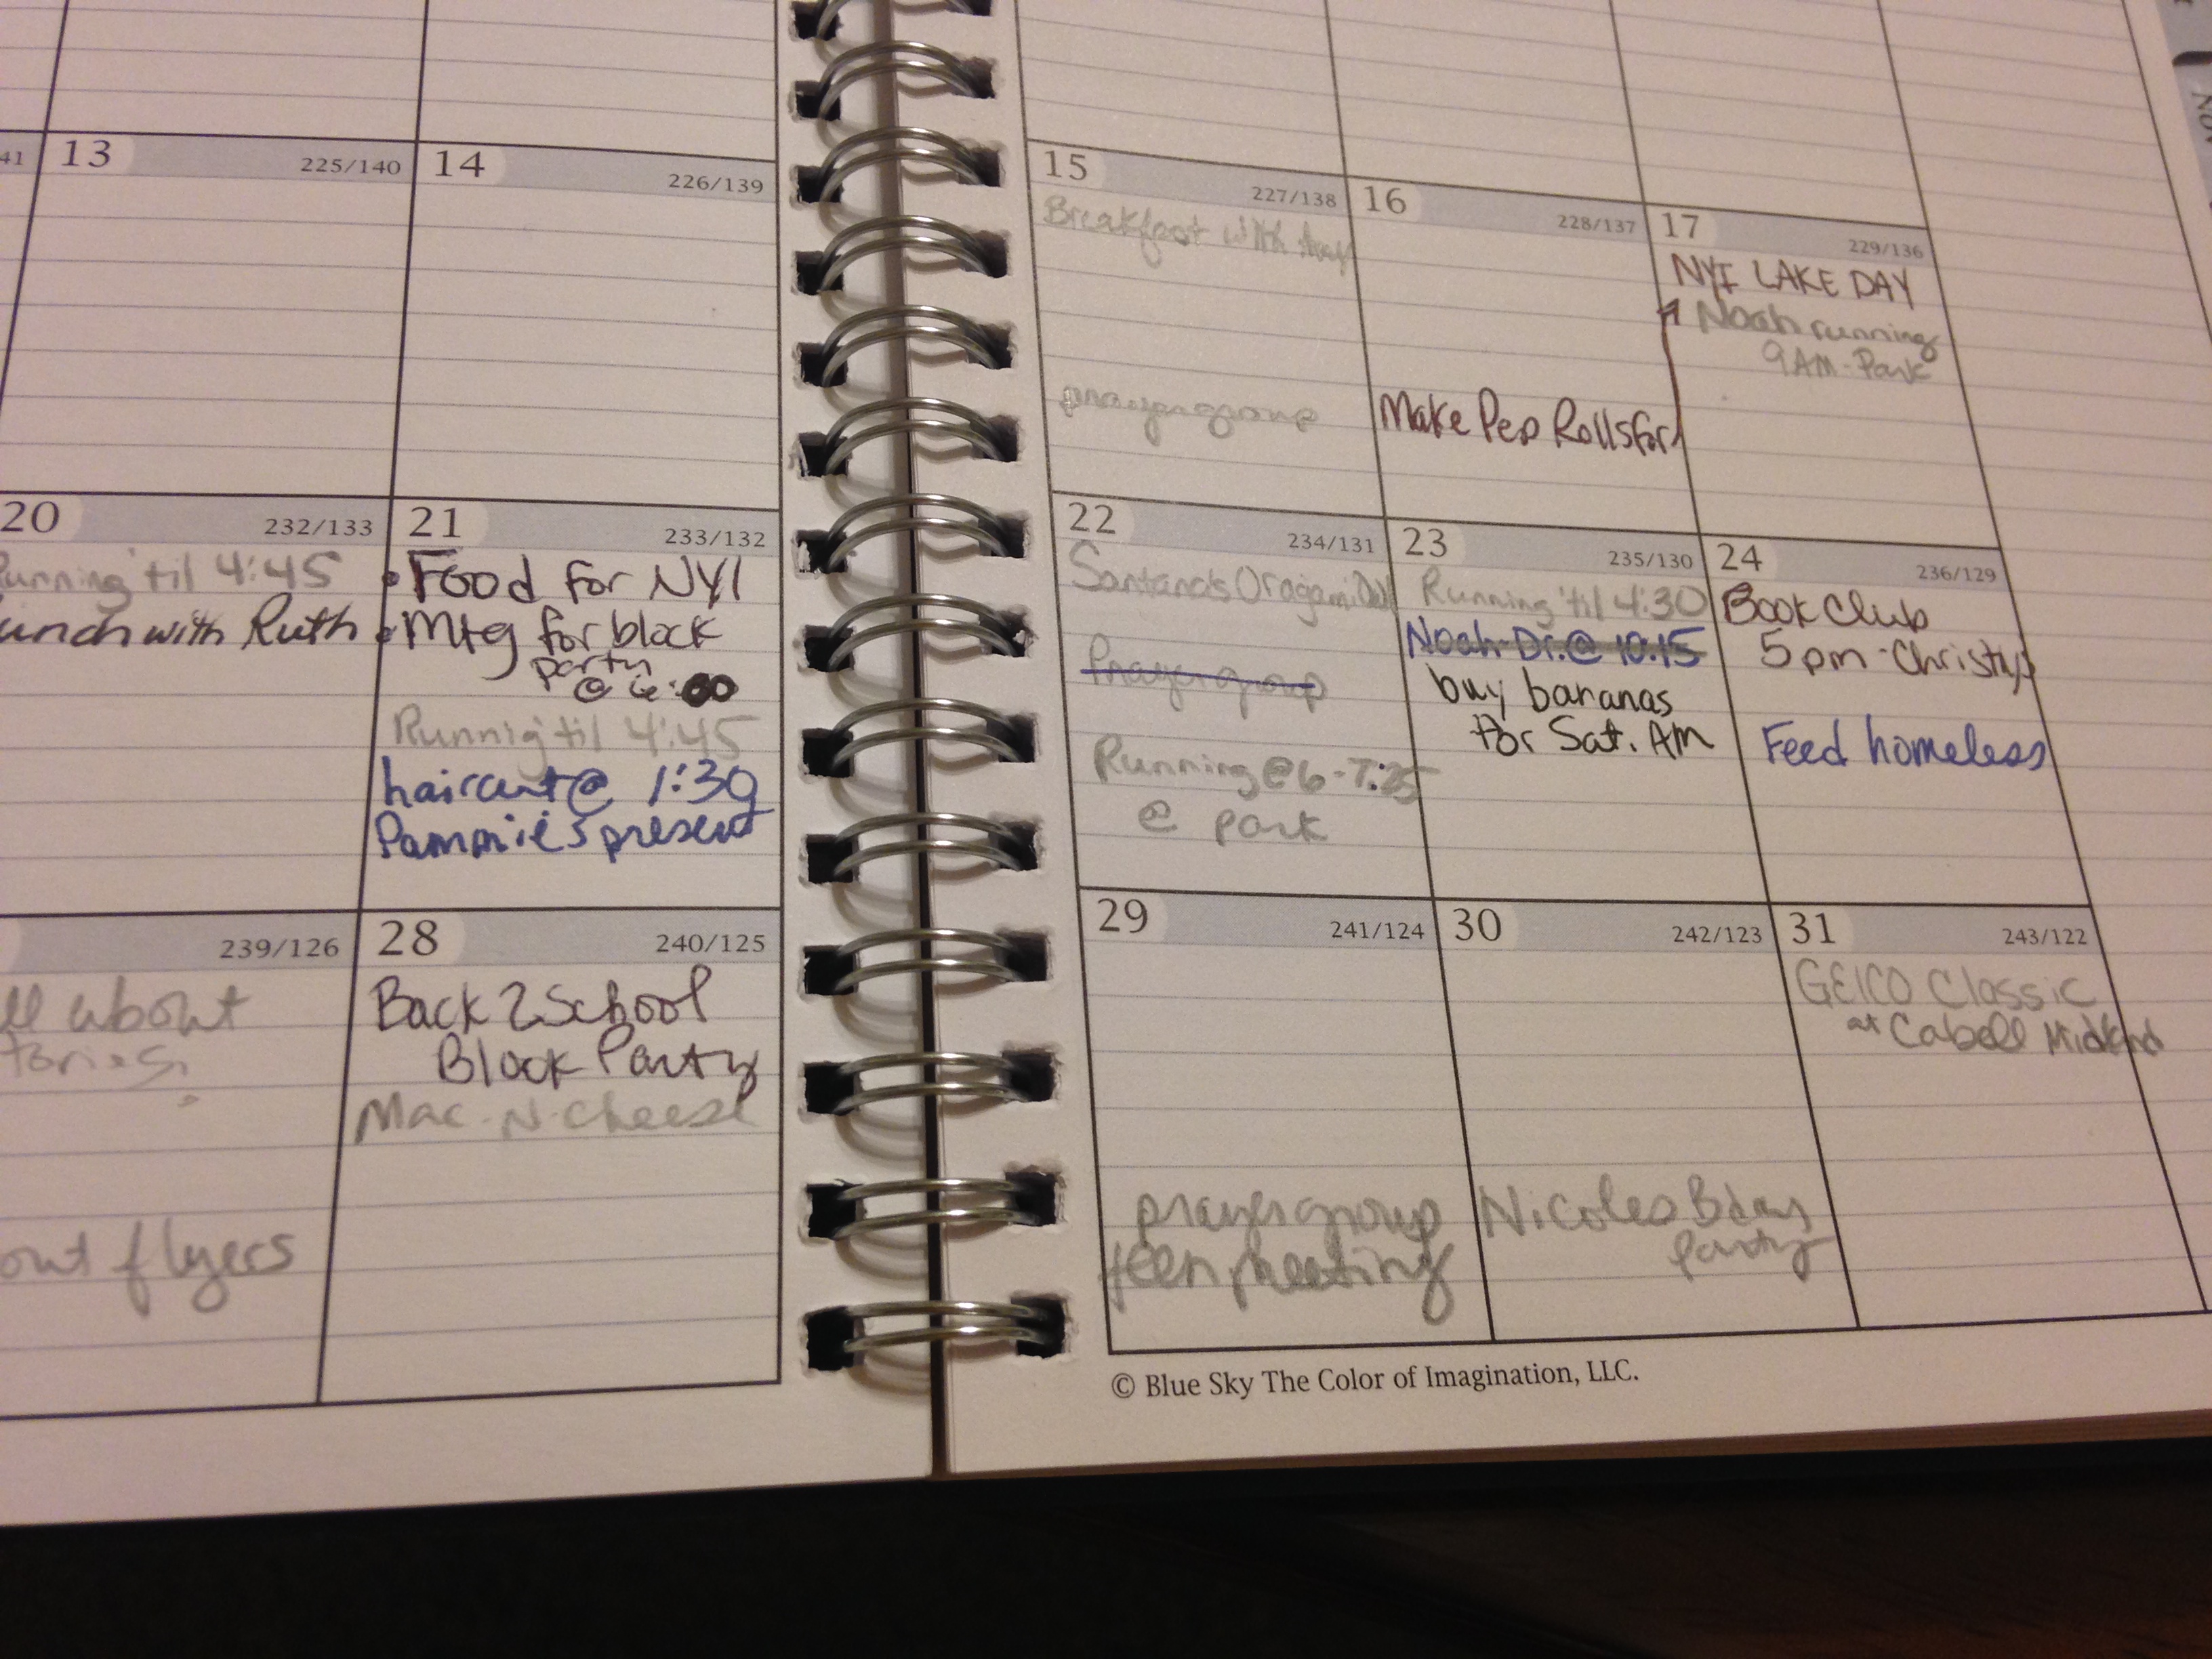 41
13 225/140
14 226/139
15 227/138
Breakfast with
prayer group
16 228/137
Make Pep Rolls for
17 229/136
NYI LAKE DAY
Noah running
9AM - Park
20 232/133
Running 'til 4:45
unch with Ruth
21 233/132
• Food for NYI
• Mtg for block
party
@ 6:00
Runnig 'til 4:45
haircut @ 1:30
Pammie's present
22 234/131
Santands Oragami
Prayer group
Running @ 6-7:25
@ park
23 235/130
Running 'til 4:30
Noah-Dr. @ 10:15
buy bananas
for Sat. AM
24 236/129
Book Club
5pm - Christy's
Feed homeless
239/126
ll about
out flyers
28 240/125
Back 2 School
Block Party
Mac-N-Cheese
29 241/124
prayer group
teen meeting
30 242/123
Nicoles Bday
party
31 243/122
GEICO Classic
at Cabell Midland
© Blue Sky The Color of Imagination, LLC.